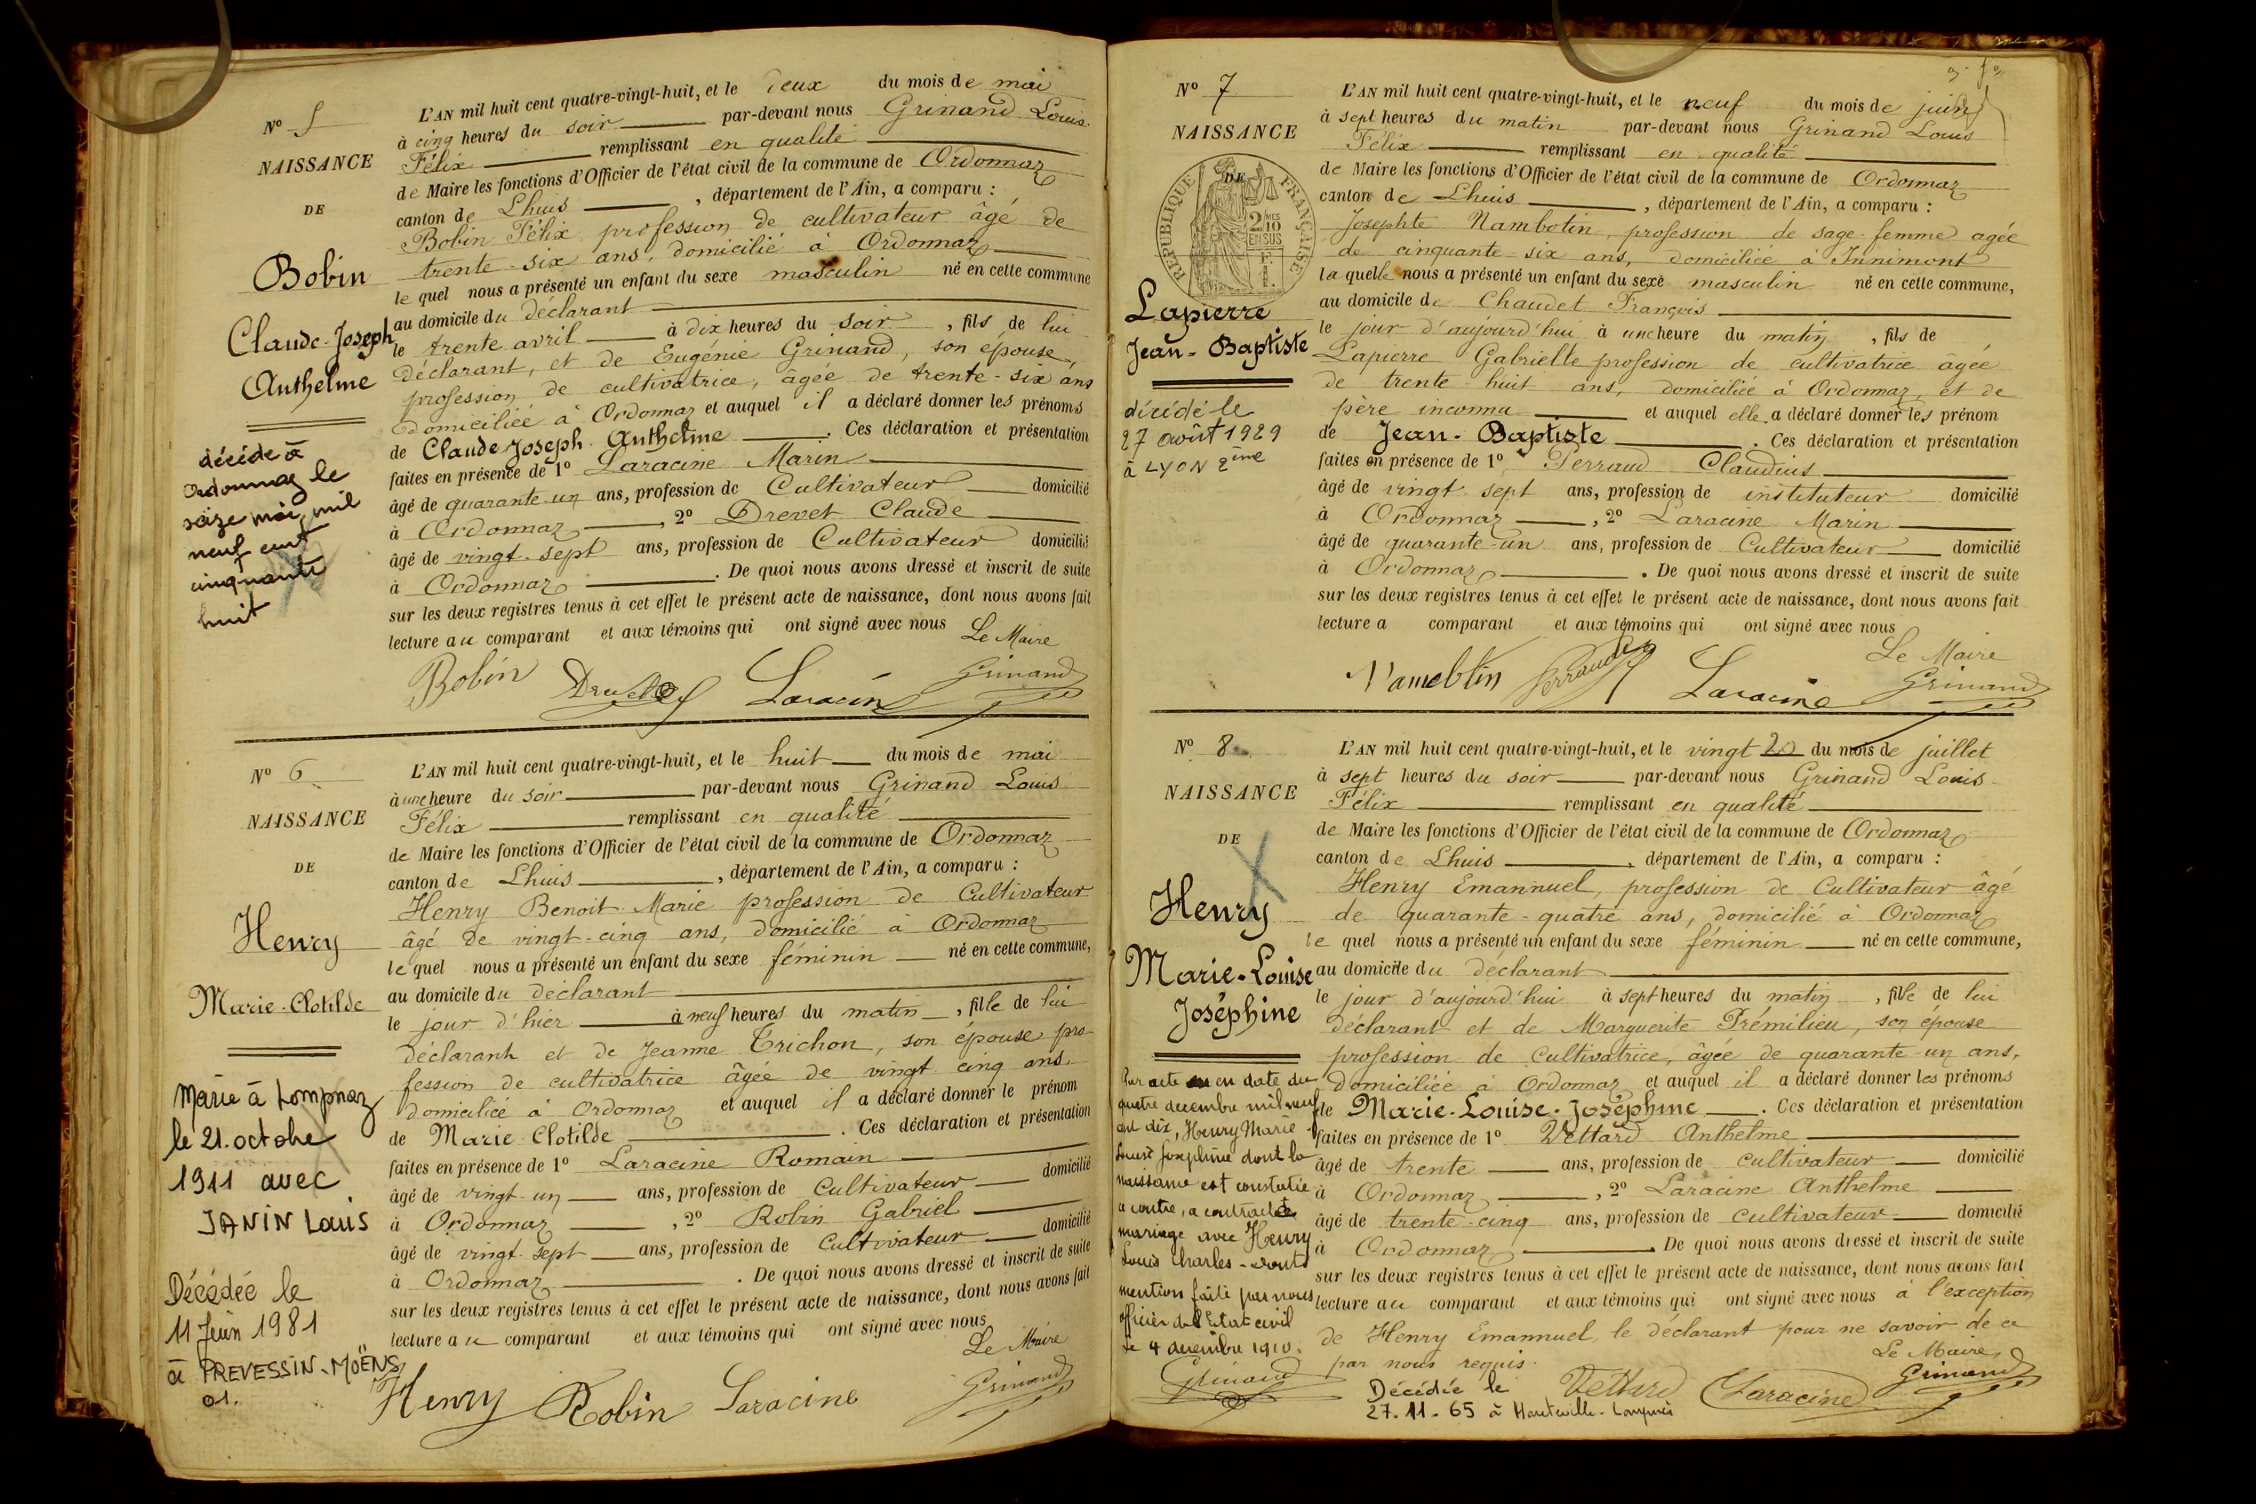 N° 5
NAISSANCE
DE
Bobin
Claude-Joseph
Anthelme
décédé à
Ordonnaz le
seize mai, mil
neuf cent
cinquante
huit
L'AN mil huit cent quatre-vingt-huit, et le deux du mois de mai
à cinq heures du soir par-devant nous Grinand Louis
Félix remplissant en qualité
de Maire les fonctions d'Officier de l'état civil de la commune de Ordonnaz
canton de Lhuis, département de l'Ain, a comparu :
Bobin Félix profession de cultivateur âgé de
trente-six ans, domicilié à Ordonnaz
le quel nous a présenté un enfant du sexe masculin né en cette commune
au domicile du déclarant
le trente avril à dix heures du soir, fils de lui
déclarant, et de Eugénie Grinand, son épouse,
profession de cultivatrice, âgée de trente-six ans
domiciliée à Ordonnaz et auquel il a déclaré donner les prénoms
de Claude Joseph Anthelme. Ces déclaration et présentation
faites en présence de 1° Laracine Marin
âgé de quarante-un ans, profession de Cultivateur domicilié
à Ordonnaz, 2° Drevet Claude
âgé de vingt-sept ans, profession de Cultivateur domicilié
à Ordonnaz. De quoi nous avons dressé et inscrit de suite
sur les deux registres tenus à cet effet le présent acte de naissance, dont nous avons fait
lecture au comparant et aux témoins qui ont signé avec nous
Le Maire
Bobin Laracine Grinand
N° 6
NAISSANCE
DE
Henry
Marie-Clotilde
Marié à Lompnaz
le 21. octobre
1911 avec
JANIN Louis
Décédée le
11 Juin 1981
à PREVESSIN-MOËNS
01.
L'AN mil huit cent quatre-vingt-huit, et le huit du mois de mai
à une heure du soir par-devant nous Grinand Louis
Félix remplissant en qualité
de Maire les fonctions d'Officier de l'état civil de la commune de Ordonnaz
canton de Lhuis, département de l'Ain, a comparu :
Henry Benoit Marie profession de Cultivateur
âgé de vingt-cinq ans, domicilié à Ordonnaz
le quel nous a présenté un enfant du sexe féminin né en cette commune,
au domicile du déclarant
le jour d'hier à neuf heures du matin, fille de lui
déclarant et de Jeanne Trichon, son épouse pro-
fession de cultivatrice âgée de vingt cinq ans,
domiciliée à Ordonnaz et auquel il a déclaré donner le prénom
de Marie Clotilde. Ces déclaration et présentation
faites en présence de 1° Laracine Romain
âgé de vingt-un ans, profession de Cultivateur domicilié
à Ordonnaz, 2° Robin Gabriel
âgé de vingt-sept ans, profession de Cultivateur domicilié
à Ordonnaz. De quoi nous avons dressé et inscrit de suite
sur les deux registres tenus à cet effet le présent acte de naissance, dont nous avons fait
lecture au comparant et aux témoins qui ont signé avec nous
Le Maire
Henry Robin Laracine Grinand
N° 7
NAISSANCE
DE
RÉPUBLIQUE FRANÇAISE
2/10 MES
EN SUS
Lapierre
Jean-Baptiste
décédé le
27 août 1929
à LYON 2ème
L'AN mil huit cent quatre-vingt-huit, et le neuf du mois de juin
à sept heures du matin par-devant nous Grinand Louis
Félix remplissant en qualité
de Maire les fonctions d'Officier de l'état civil de la commune de Ordonnaz
canton de Lhuis, département de l'Ain, a comparu :
Josephte Nambotin, profession de sage-femme agée
de cinquante-six ans, domiciliée à Innimont
la quelle nous a présenté un enfant du sexe masculin né en cette commune,
au domicile de Chaudet François
le jour d'aujourd'hui à une heure du matin, fils de
Lapierre Gabrielle profession de cultivatrice âgée
de trente-huit ans, domiciliée à Ordonnaz, et de
père inconnu et auquel elle a déclaré donner les prénom
de Jean-Baptiste. Ces déclaration et présentation
faites en présence de 1° Perraud Claudius
âgé de vingt-sept ans, profession de instituteur domicilié
à Ordonnaz, 2° Laracine Marin
âgé de quarante-un ans, profession de Cultivateur domicilié
à Ordonnaz. De quoi nous avons dressé et inscrit de suite
sur les deux registres tenus à cet effet le présent acte de naissance, dont nous avons fait
lecture a comparant et aux témoins qui ont signé avec nous
Le Maire
Perraud Laracine Grinand
N° 8
NAISSANCE
DE
Henry
Marie-Louise
Joséphine
Par acte en date du
quatre decembre mil neuf
cent dix, Henry Marie
Louise Joséphine dont la
naissance est constatée
ci contre, a contracté
mariage avec Henry
Louis Charles - dont
mention faite par nous
officier de l'Etat civil
le 4 decembre 1910.
Grinand
L'AN mil huit cent quatre-vingt-huit, et le vingt 20 du mois de juillet
à sept heures du soir par-devant nous Grinand Louis
Félix remplissant en qualité
de Maire les fonctions d'Officier de l'état civil de la commune de Ordonnaz
canton de Lhuis, département de l'Ain, a comparu :
Henry Emannuel, profession de Cultivateur âgé
de quarante-quatre ans, domicilié à Ordonnaz
le quel nous a présenté un enfant du sexe féminin né en cette commune,
au domicile du déclarant
le jour d'aujourd'hui à sept heures du matin, fille de lui
déclarant et de Marguerite Prémilieu, son épouse
profession de cultivatrice, âgée de quarante-un ans,
domiciliée à Ordonnaz et auquel il a déclaré donner les prénoms
de Marie-Louise-Joséphine. Ces déclaration et présentation
faites en présence de 1° Vettard Anthelme
âgé de trente ans, profession de cultivateur domicilié
à Ordonnaz, 2° Laracine Anthelme
âgé de trente-cinq ans, profession de cultivateur domicilié
à Ordonnaz. De quoi nous avons dressé et inscrit de suite
sur les deux registres tenus à cet effet le présent acte de naissance, dont nous avons fait
lecture au comparant et aux témoins qui ont signé avec nous à l'exception
de Henry Emannuel, le déclarant pour ne savoir de ce
par nous requis.
Le Maire
Vettard Laracine Grinand
Décédée le
27.11.65 à Hauteville-Lompnès